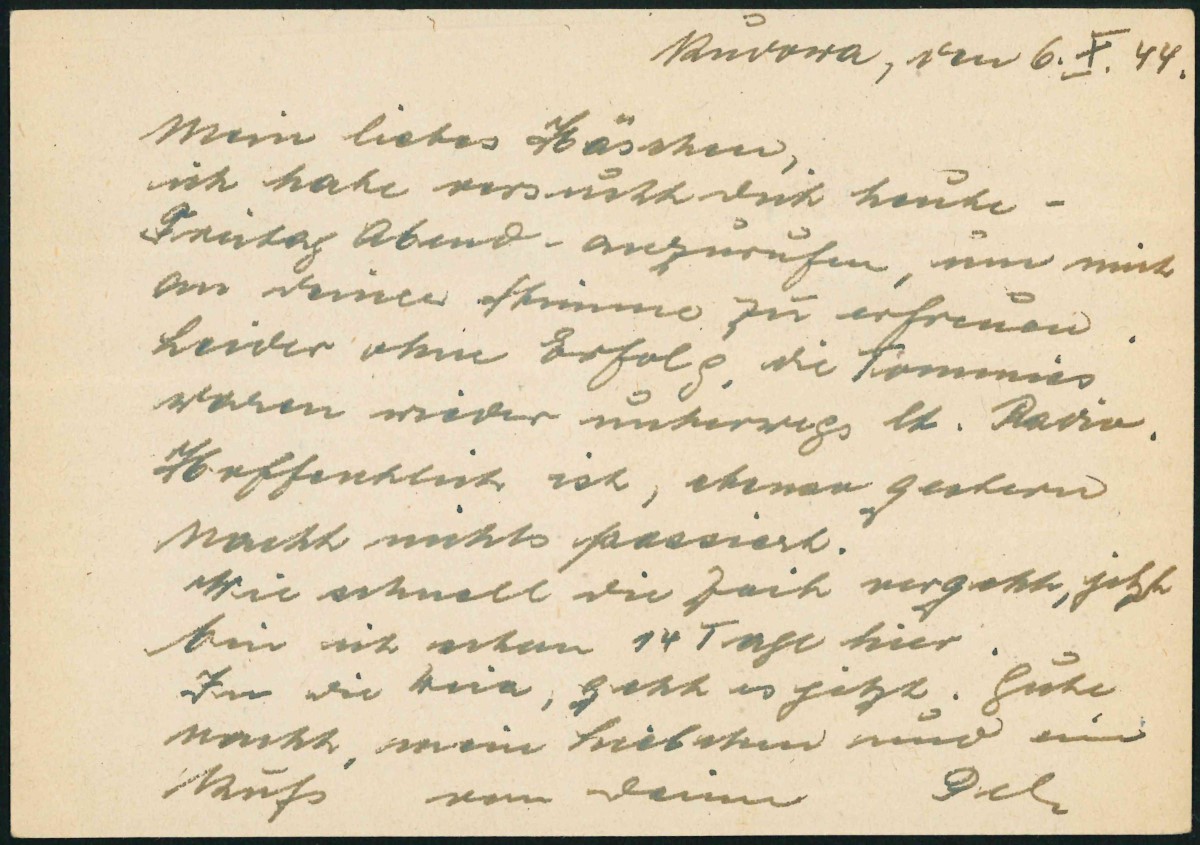 Kudowa, den 6. X. 44.
Mein liebes Häschen,
ich habe versucht dich heute -
Freitag Abend - anzurufen, um mich
an deiner Stimme zu erfreuen.
Leider ohne Erfolg, die Tommies
waren wieder unterwegs lt. Radio.
Hoffentlich ist, ebenso gestern
Nacht nichts passiert.
Wie schnell die Zeit vergeht, jetzt
bin ich schon 14 Tage hier.
In die, geht es jetzt. Gute
Nacht, mein Liebchen und ein
Kuß von deinem